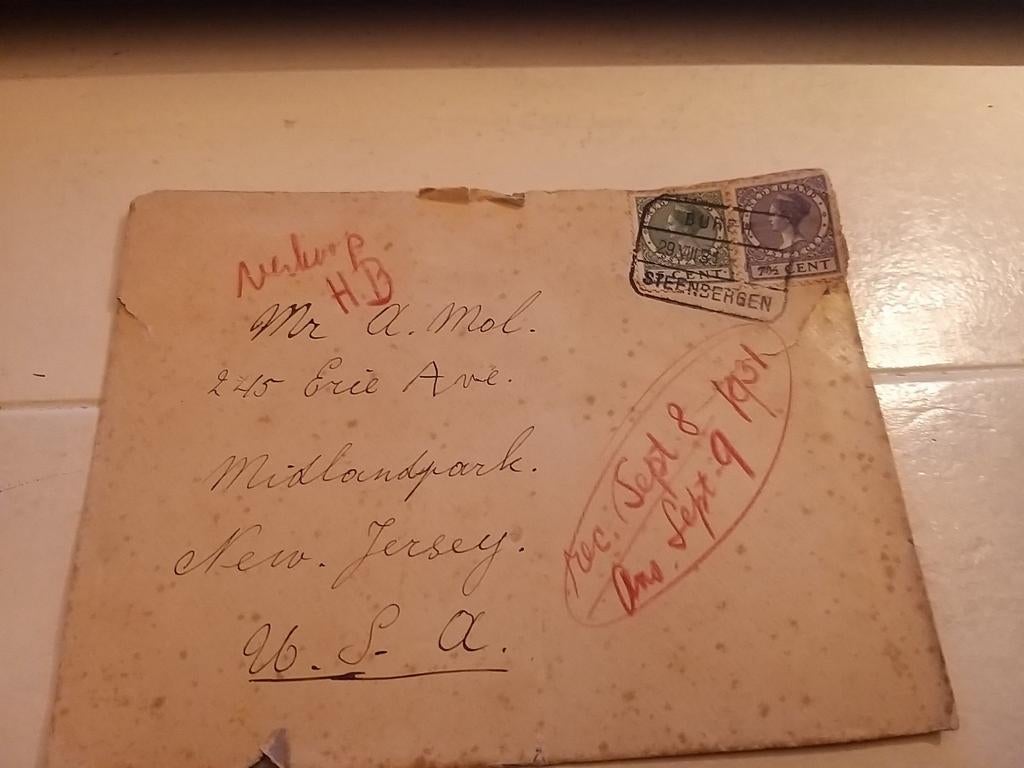 verkoop
H B
Mr A. Mol.
245 Erie Ave.
Midlandpark.
New. Jersey.
U. S. A.
NEDERLAND
CENT
NEDERLAND
7½ CENT
STEENBERGEN
rec. Sept 8 1931
Ans. Sept. 9